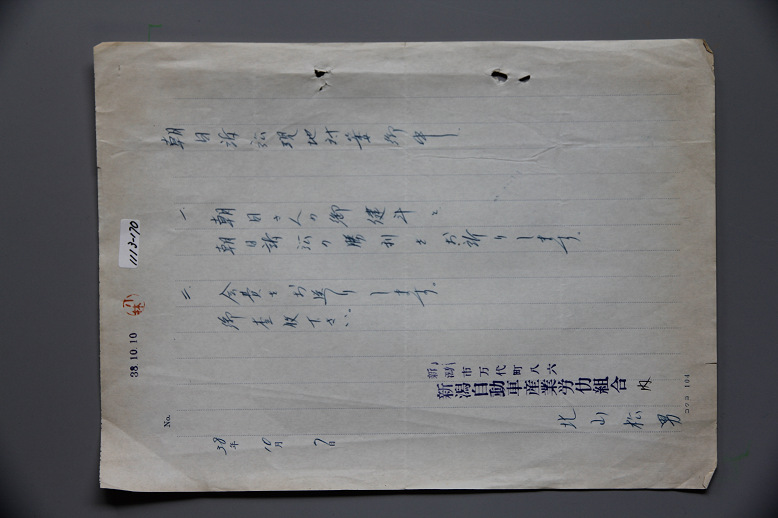 No.
38年 10月 7日
朝日訴訟現地対策御中
一、朝日さんの御健斗と
朝日訴訟の勝利をお祈りします。
二、会費をお送りします。
御査収下さい。
新潟市万代町八六
新潟自動車産業労仂組合 内
北山松男
1113-170
小林
38.10.10
コクヨ 104